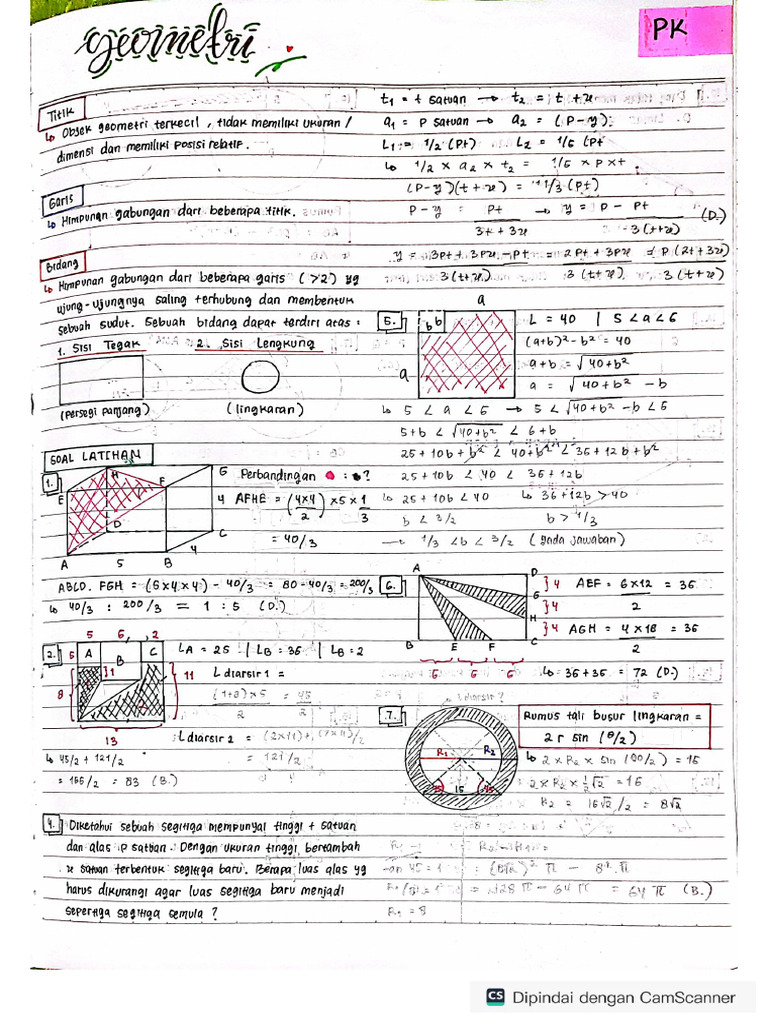 geometri
PK
Titik
↳ Objek geometri terkecil, tidak memiliki ukuran /
dimensi dan memiliki posisi relatif.
Garis
↳ Himpunan gabungan dari beberapa titik.
Bidang
↳ Himpunan gabungan dari beberapa garis (>2) yg
ujung-ujungnya saling terhubung dan membentuk
sebuah sudut. Sebuah bidang dapat terdiri atas :
1. Sisi Tegak 2. Sisi Lengkung
(persegi panjang) (lingkaran)
SOAL LATIHAN
1.
H
F
G
E
D
C
A 5 B 4
Perbandingan : ?
4 AFHE = (4x4)/2 x 5 x 1/3
= 40/3
ABCD. FGH = (5 x 4 x 4) - 40/3 = 80 - 40/3 = 200/3
↳ 40/3 : 200/3 = 1 : 5 (D.)
2.
5 6 2
5 A B C
8 1 11
13
LA = 25 | LB = 36 | LB = 2
L diarsir 1 =
(1+8) x 5 / 2 = 45 / 2
L diarsir 2 = (2x11)+(
= 121/2
↳ 45/2 + 121/2
= 166/2 = 83 (B.)
4. Diketahui sebuah segitiga mempunyai tinggi t satuan
dan alas p satuan. Dengan ukuran tinggi bertambah
x satuan terbentuk segitiga baru. Berapa luas alas yg
harus dikurangi agar luas segitiga baru menjadi
sepertiga segitiga semula ?
t1 = t satuan → t2 = t + x
a1 = p satuan → a2 = (p-y)
L1 = 1/2 (pt) L2 = 1/6 (pt
↳ 1/2 x a2 x t2 = 1/6 x p x t
(p-y)(t+x) = 1/3 (pt)
p-y = pt / 3t + 3x → y = p - pt / 3(t+x) (D.)
y = 3pt + 3px - pt / 3(t+x) = 2pt + 3px / 3(t+x) = p(2t+3x) / 3(t+x)
5.
a
b b
a
L = 40 | 5 < a < 6
(a+b)² - b² = 40
a+b = √40+b²
a = √40+b² - b
↳ 5 < a < 6 → 5 < √40+b² - b < 6
5+b < √40+b² < 6+b
25 + 10b + b² < 40+b² < 36 + 12b + b²
25 + 10b < 40 < 36 + 12b
↳ 25 + 10b < 40 ↳ 36+12b > 40
b < 3/2 b > 1/3
→ 1/3 < b < 3/2 (gada jawaban)
6.
A D
}4 G
}4 H
}4 C
B E F
6 6 6
AEF = 6 x 12 / 2 = 36
AGH = 4 x 18 / 2 = 36
↳ 36 + 36 = 72 (D.)
7.
L diarsir?
R1 R2
45 15 45
Rumus tali busur lingkaran =
2 r sin (θ/2)
↳ 2 x R2 x sin (90/2) = 16
= 2 x R2 x 1/2 √2 = 16
R2 = 16√2 / 2 = 8√2
π - 8² . π
= 128 π - 64 π = 64 π (B.)
R1 = 8
CS Dipindai dengan CamScanner